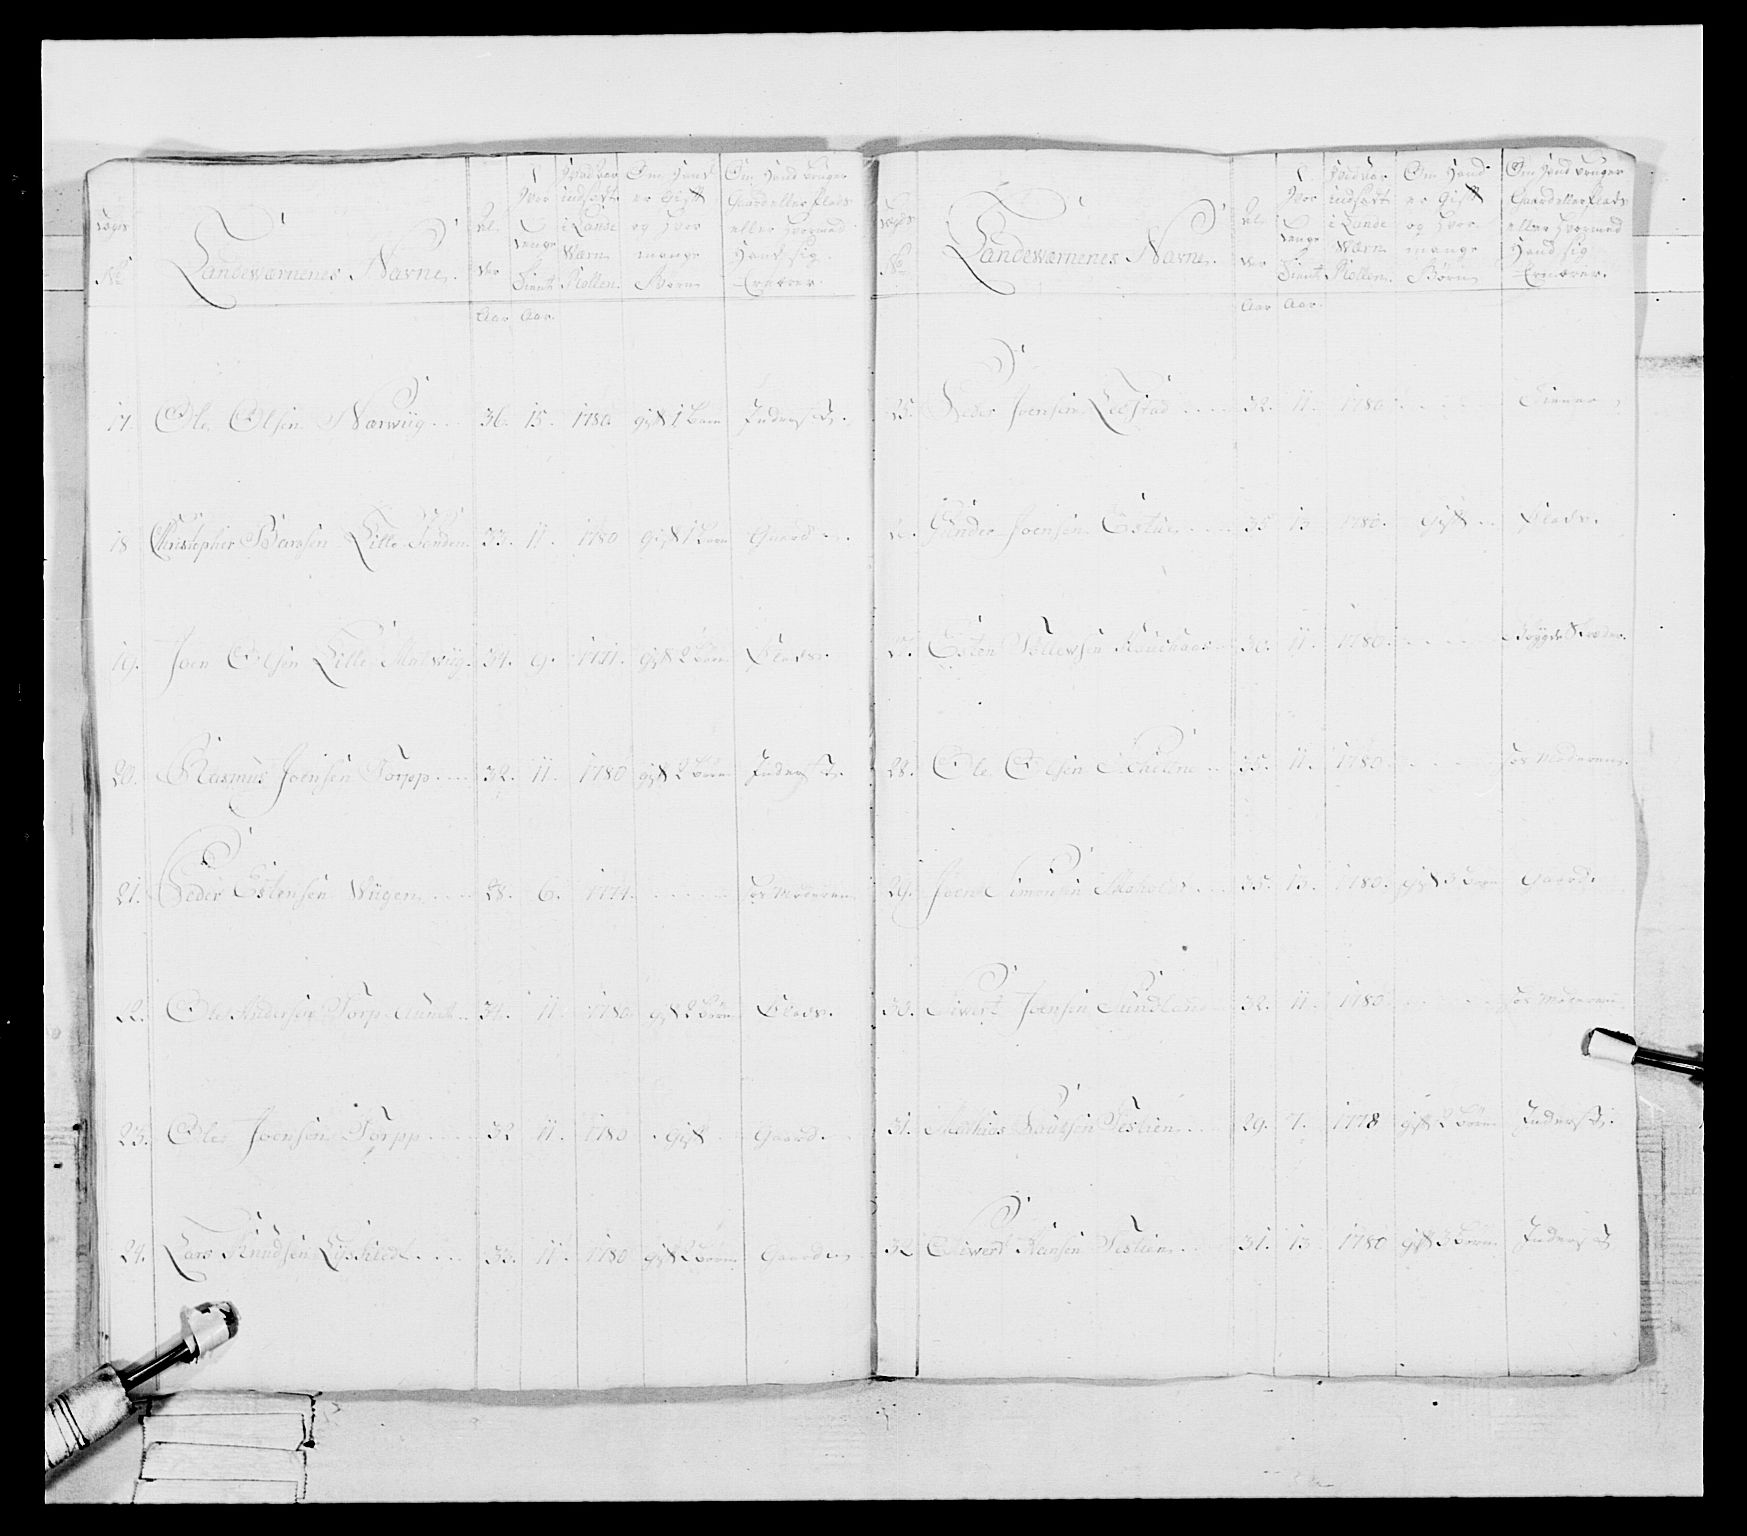 Lægs No
Landeværnenes Navne.
Al-der
Hvor Længe Tient
Hvad Aar indsadt i Lande Værn Rollen.
Om Hand er Gift og Hvor mange Børn
Om Hand bruger Gaard eller Plads eller Hvormed Hand sig Ernærer.
Aar Aar.
17. Ole Olsen Nærwiig 36. 15. 1780 gift 1 barn Inderst.
18 Christopher Larssen Lille 33. 11. 1780 gift 1 barn Gaard
19. Joen Olsen Lille 34. 9. 1771. gift 2 børn Plads.
20. Rasmus Joensen Torpp 32. 11. 1780 gift 2 børn Inderst.
21. Peder Estensen Wiigen 28. 6. 1774. hos Moderen
22. Ole Andersen Torp 34. 11. 1780. gift 2 børn Plads.
23. Ole Joensen Torpp 32 11. 1780 Gift Gaard.
24. Lars Knudsen 33. 11. 1780 gift 2 børn Gaard
Lægs No
Landeværnenes Navne.
Al-der
Hvor Længe Tient
Hvad Aar indsadt i Lande Værn Rollen.
Om Hand er Gift og Hvor mange Børn
Om Hand bruger Gaard eller Plads eller Hvormed Hand sig Ernærer.
Aar Aar.
25. Peder Joensen 32. 11. 1780 Tiener
26. Gunder Joensen 35 13 1780. Gift Plads.
27. Esten Tollevsen 30. 11. 1780.
28. Ole Olsen 35. 11. 1780. hos Moderen.
29. Joen Simonsen 35. 13. 1780. gift 3 børn Gaard.
30. Siwert Joensen Sundland 32. 11. 1780 hos Moderen
31. Mathias Testien 29. 7. 1778 gift 2 børn Inderst.
32 Siwert Testien 31. 13 1780 gift 3 børn Inderst